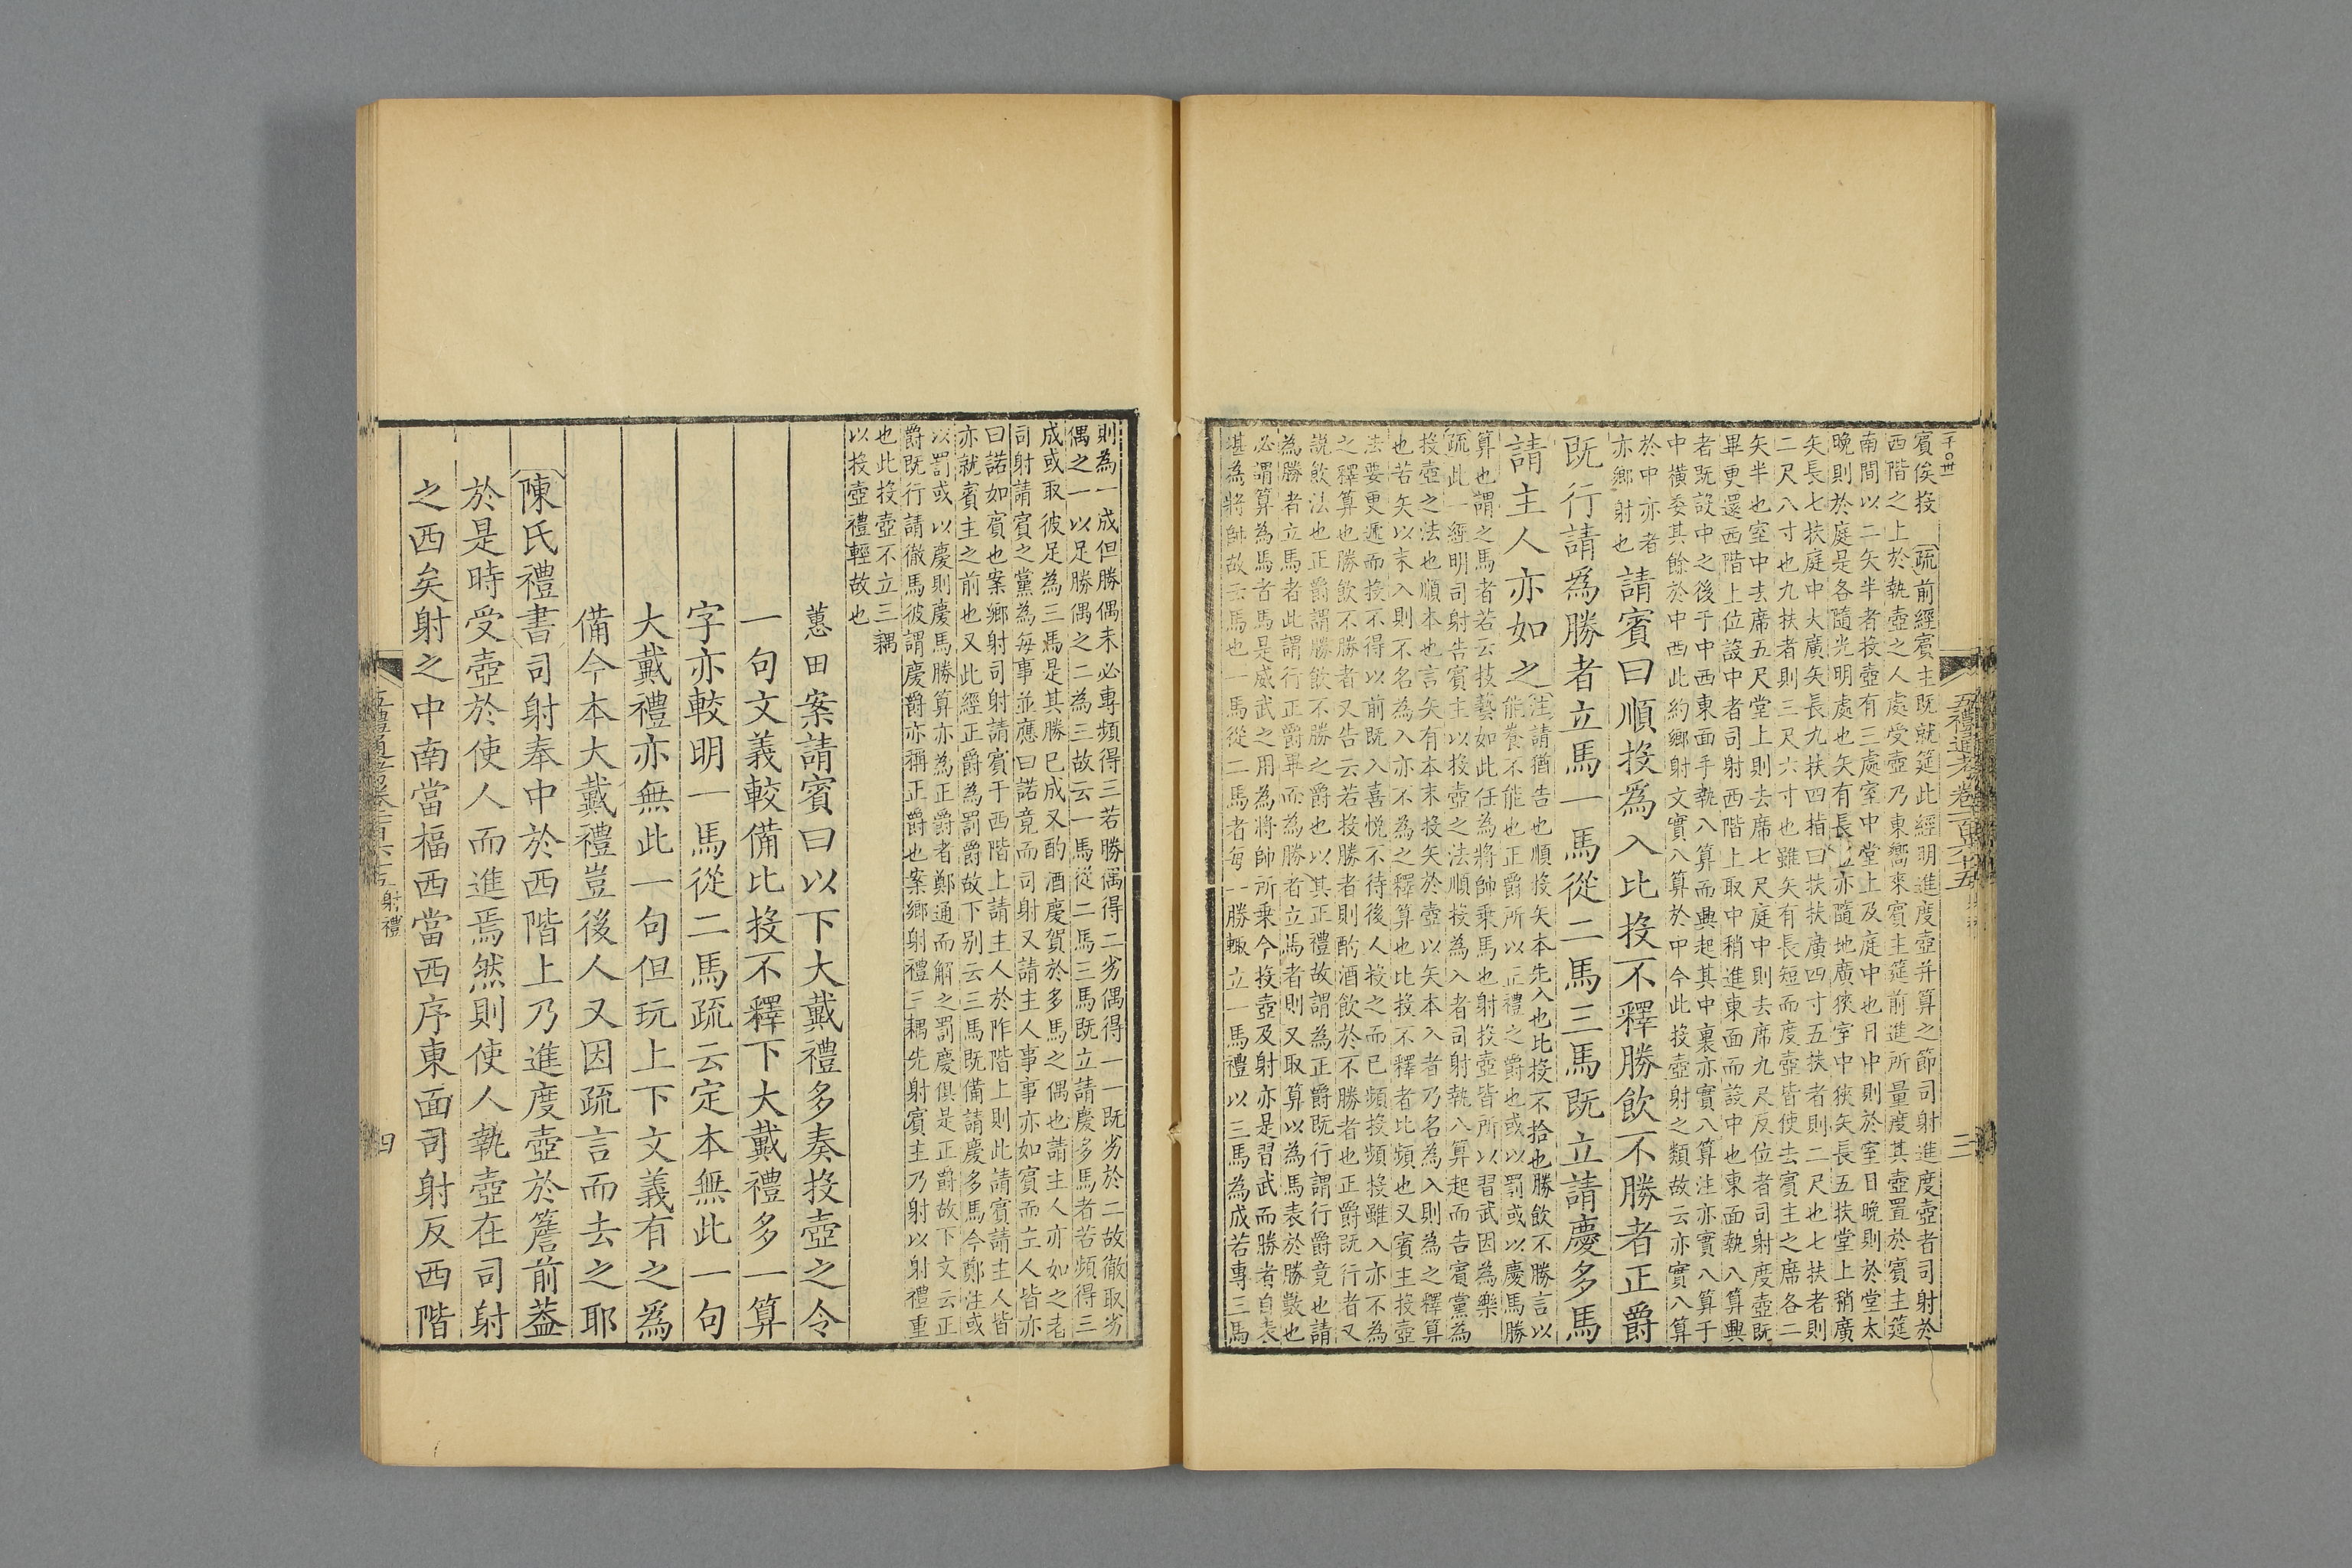 賓俟投
疏前經賓主既就筵此經明進度壺并算之節司射進度壺者司射於
西階之上於執壺之人處受壺乃東嚮來賓主筵前進所量度其壺置於賓主筵
南間以二矢半者投壺有三處室中堂上及庭中也日中則於室日晚則於堂太
晚則於庭是各隨光明處也矢有長短亦隨地廣狹室中狹矢長五扶堂上稍廣
矢長七扶庭中大廣矢長九扶四指曰扶扶廣四寸五扶者則二尺也七扶者則
二尺八寸也九扶者則三尺六寸也雖矢有長短而度壺皆使去賓主之席各二
矢半也室中去席五尺堂上則去席七尺庭中則去席九尺反位者司射度壺既
畢更還西階上位設中者司射西階上取中稍進東面而設中也東面執八算興
者既設中之後于中西東面手執八算而興起其中裏亦實八算注亦實八算于
中橫委其餘於中西此約鄉射文實八算於中今此投壺射之類故云亦實八算
於中亦者
亦鄉射也
請賓曰順投爲入比投不釋勝飲不勝者正爵
既行請爲勝者立馬一馬從二馬三馬既立請慶多馬
請主人亦如之
注請猶告也順投矢本先入也比投不拾也勝飲不勝言以
能養不能也正爵所以正禮之爵也或以罰或以慶馬勝
算也謂之馬者若云技藝如此任為將帥乘馬也射投壺皆所以習武因為樂
疏此一經明司射告賓主以投壺之法順投為入者司射執八算起而告賓黨為
投壺之法也順本也言矢有本末投矢於壺以矢本入者乃名為入則為之釋算
也若矢以末入則不名為入亦不為之釋算也比投不釋者比頻也又賓主投壺
法要更遞而投不得以前既入喜悅不待後人投之而已頻投頻投雖入亦不為
之釋算也勝飲不勝者又告云若投勝者則酌酒飲於不勝者也正爵既行者又
說飲法也正爵謂勝飲不勝之爵也以其正禮故謂為正爵既行謂行爵竟也請
為勝者立馬者此謂行正爵畢而為勝者立馬者則又取算以為馬表於勝數也
必謂算為馬者馬是威武之用為將帥所乘今投壺及射亦是習武而勝者自表
堪為將帥故云馬也一馬從二馬者每一勝輒立一馬禮以三馬為成若專三馬
五禮通考卷一百六十五
三
則為一成但勝偶未必專頻得三若勝偶得二劣偶得一一既劣於二故徹取劣
偶之一以足勝偶之二為三故云一馬從二馬三馬既立請慶多馬者若頻得三
成或取彼足為三馬是其勝已成又酌酒慶賀於多馬之偶也請主人亦如之者
司射請賓之黨為每事並應曰諾竟而司射又請主人事事亦如賓而主人皆亦
曰諾如賓也案鄉射司射請賓于西階上請主人於阼階上則此請賓請主人皆
亦就賓主之前也又此經正爵為罰爵故下别云三馬既備請慶多馬今鄭注或
以罰或以慶則慶馬勝算亦為正爵者鄭通而解之罰慶俱是正爵故下文云正
爵既行請徹馬彼謂慶爵亦稱正爵也案鄉射禮三耦先射賓主乃射以射禮重
也此投壺不立三耦
以投壺禮輕故也
蕙田案請賓曰以下大戴禮多奏投壺之令
一句文義較備比投不釋下大戴禮多一算
字亦較明一馬從二馬疏云定本無此一句
大戴禮亦無此一句但玩上下文義有之爲
備今本大戴禮豈後人又因疏言而去之耶
陳氏禮書司射奉中於西階上乃進度壺於簷前葢
於是時受壺於使人而進焉然則使人執壺在司射
之西矣射之中南當楅西當西序東面司射反西階
射禮
四